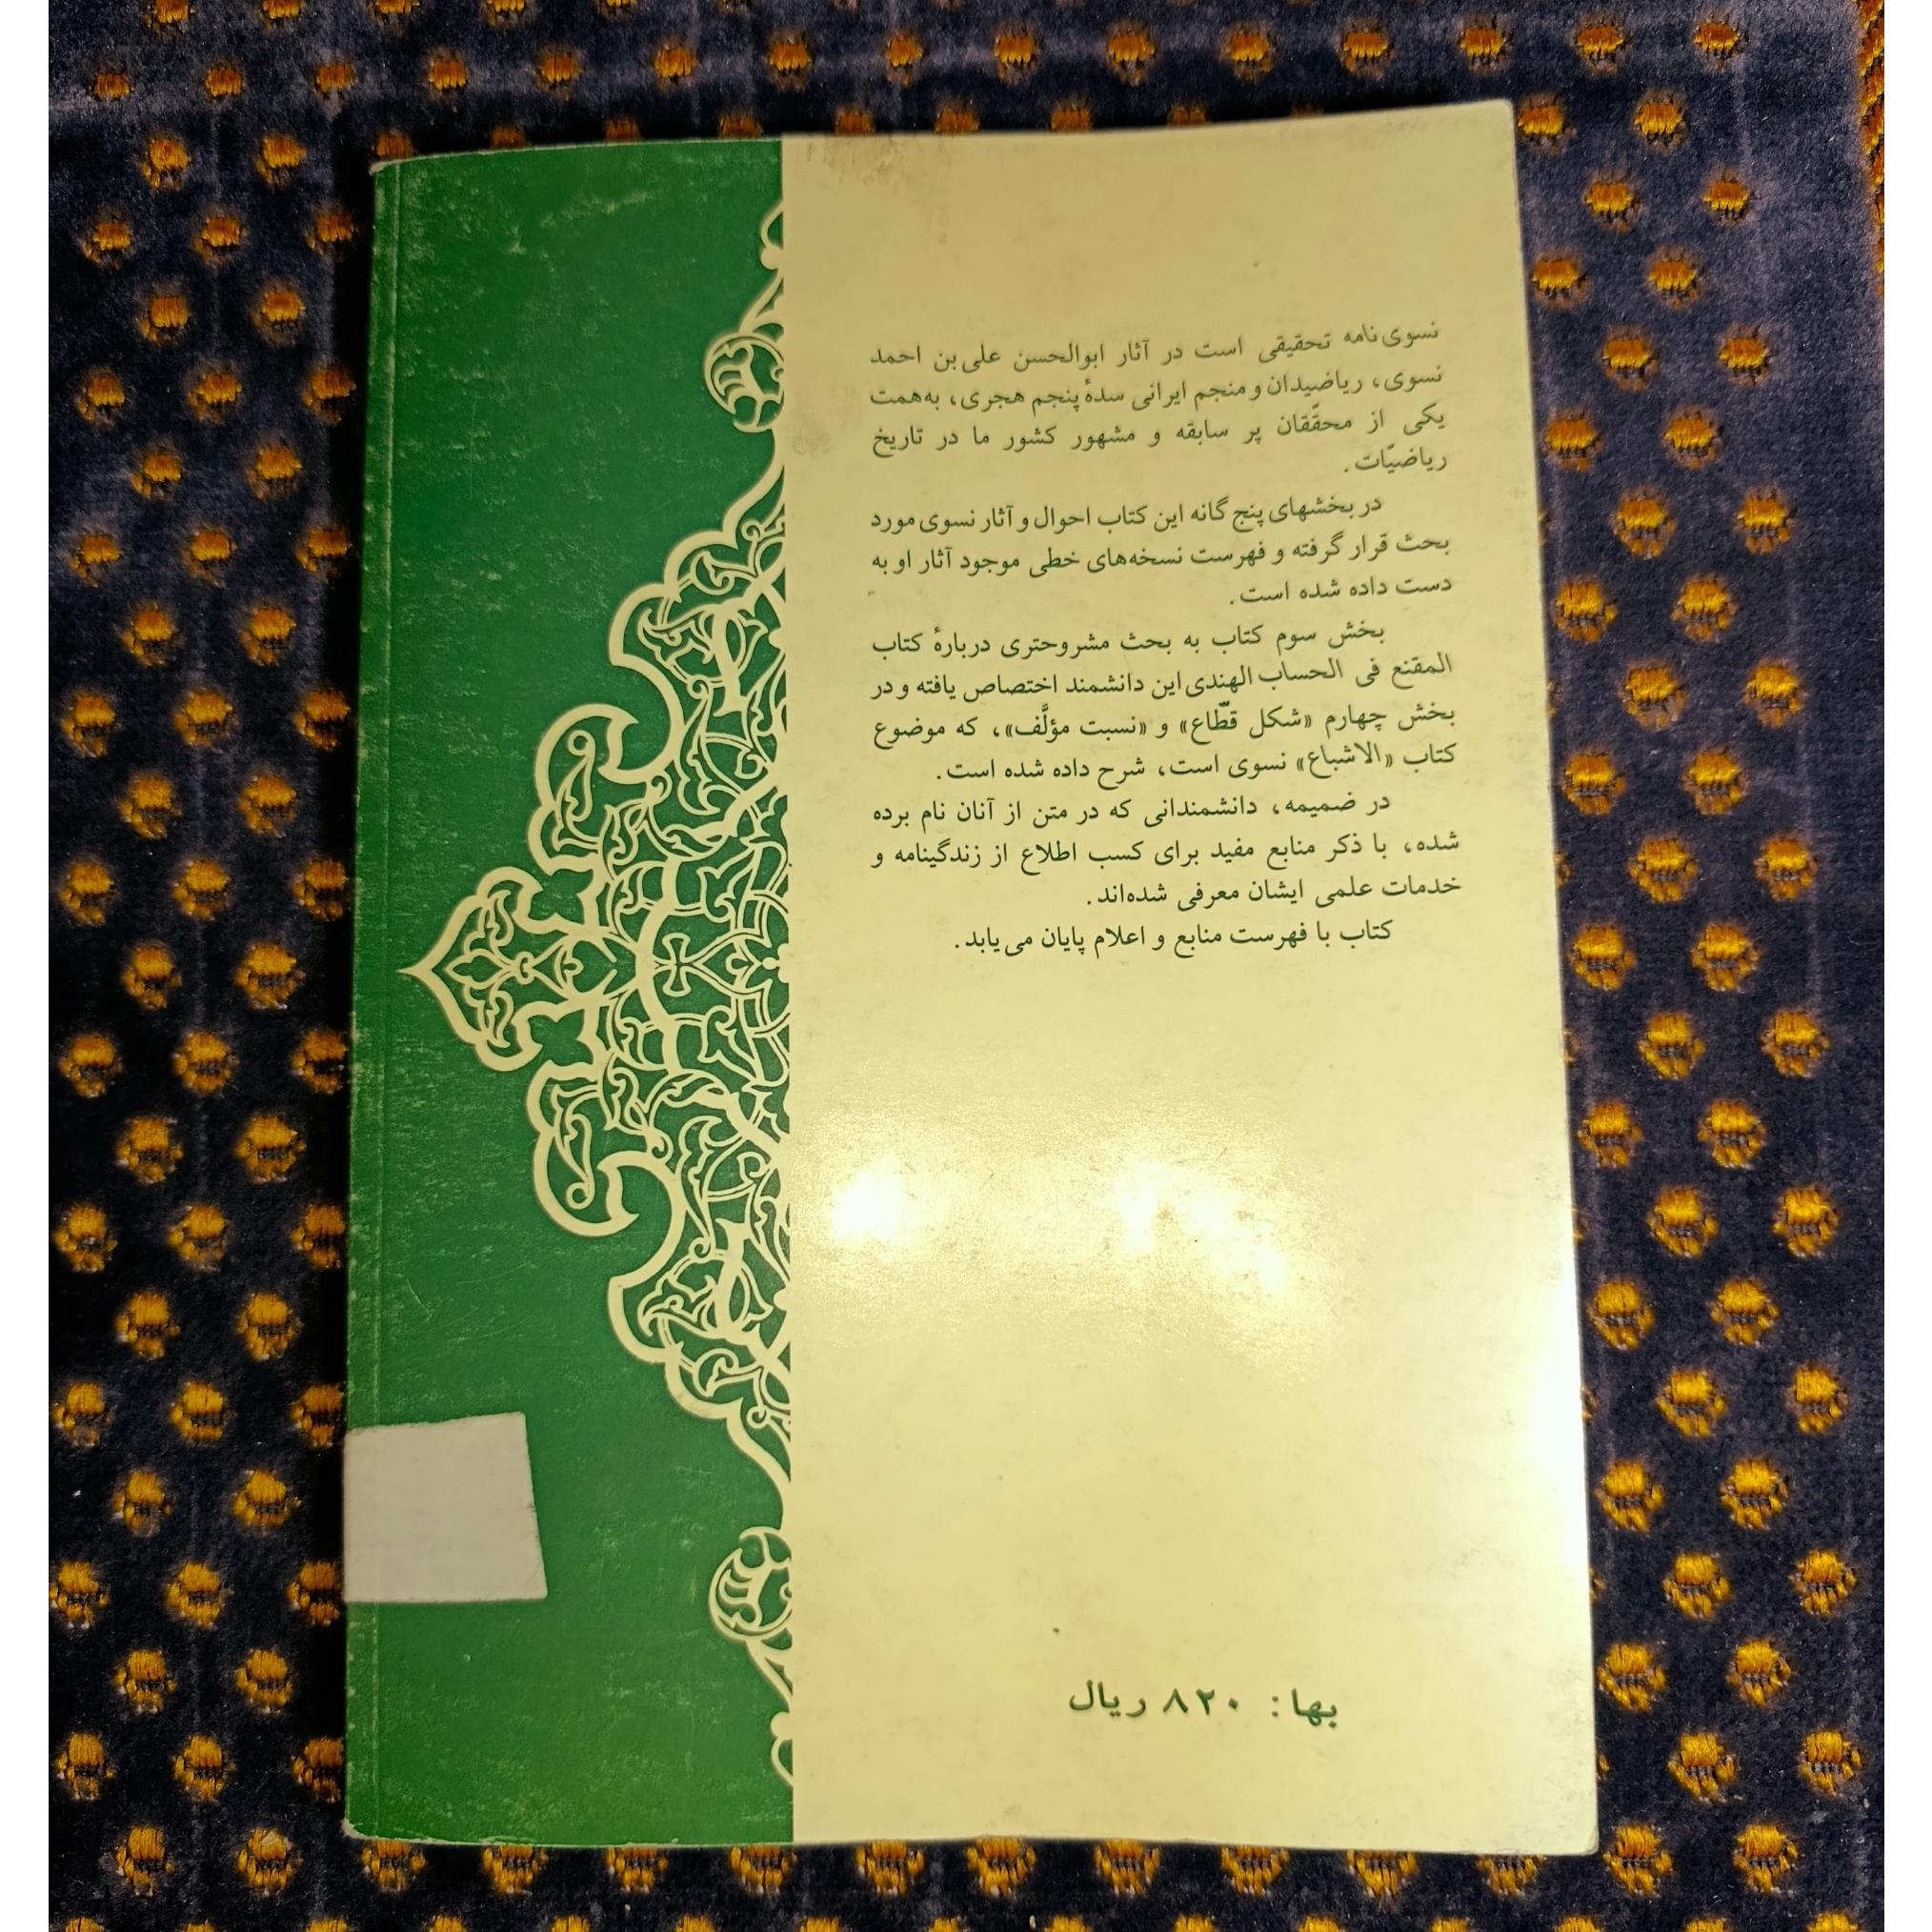 نسوی‌نامه تحقیقی است در آثار ابوالحسن علی‌بن احمد
نسوی، ریاضیدان و منجم ایرانی سدهٔ پنجم هجری، به‌همت
یکی از محقّقان پر سابقه و مشهور کشور ما در تاریخ
ریاضیّات.
در بخشهای پنج گانه این کتاب احوال و آثار نسوی مورد
بحث قرار گرفته و فهرست نسخه‌های خطی موجود آثار او به
دست داده شده است.
بخش سوم کتاب به بحث مشروحتری دربارهٔ کتاب
المقنع فی الحساب الهندی این دانشمند اختصاص یافته و در
بخش چهارم «شکل قطّاع» و «نسبت مؤلَّف»، که موضوع
کتاب «الاشباع» نسوی است، شرح داده شده است.
در ضمیمه، دانشمندانی که در متن از آنان نام برده
شده، با ذکر منابع مفید برای کسب اطلاع از زندگینامه و
خدمات علمی ایشان معرفی شده‌اند.
کتاب با فهرست منابع و اعلام پایان می‌یابد.
بها: ۸۲۰ ریال